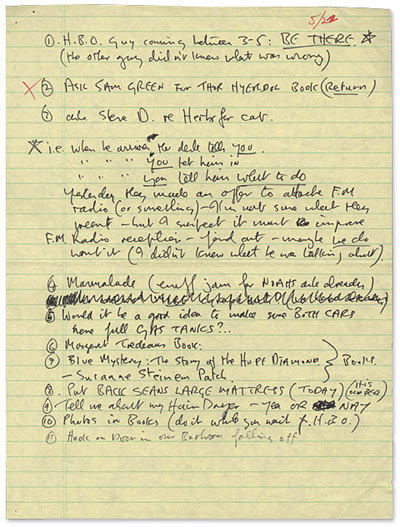 5/22
① H.B.O. Guy coming between 3-5: BE THERE.
(the other guy didn't know what was wrong)
X ② ASK SAM GREEN FOR THOR HYERDOL BOOK (Return)
③ Steve D. re Herbs for cat.
* i.e. when he arrives the desk tells YOU.
" " " " YOU let him in
" " " " YOU tell him what to do
Yesterday they made an offer to attach F.M
radio (or something) - I'm not sure what they
meant - but I suspect it must improve
F.M. Radio reception - find out - maybe we do
want it (I didn't know what he was talking about).
④ Marmalade (enuff jam for NOAHS already)
⑤ Would it be a good idea to make sure BOTH CARS
have full GAS TANKS?..
⑥ Margaret Trudeaus Book.
⑦ Blue Mystery: The Story of the HOPE DIAMOND } Books.
- Susanne Steinem Patch.
⑧ Put BACK SEANS LARGE MATTRESS (TODAY)
⑨ Tell me about my Hair Dryer - YEA OR NAY
⑩ Photos in Books (do it while you wait f. H.B.O.)
⑪ Hook on Door in our Bathroom falling off